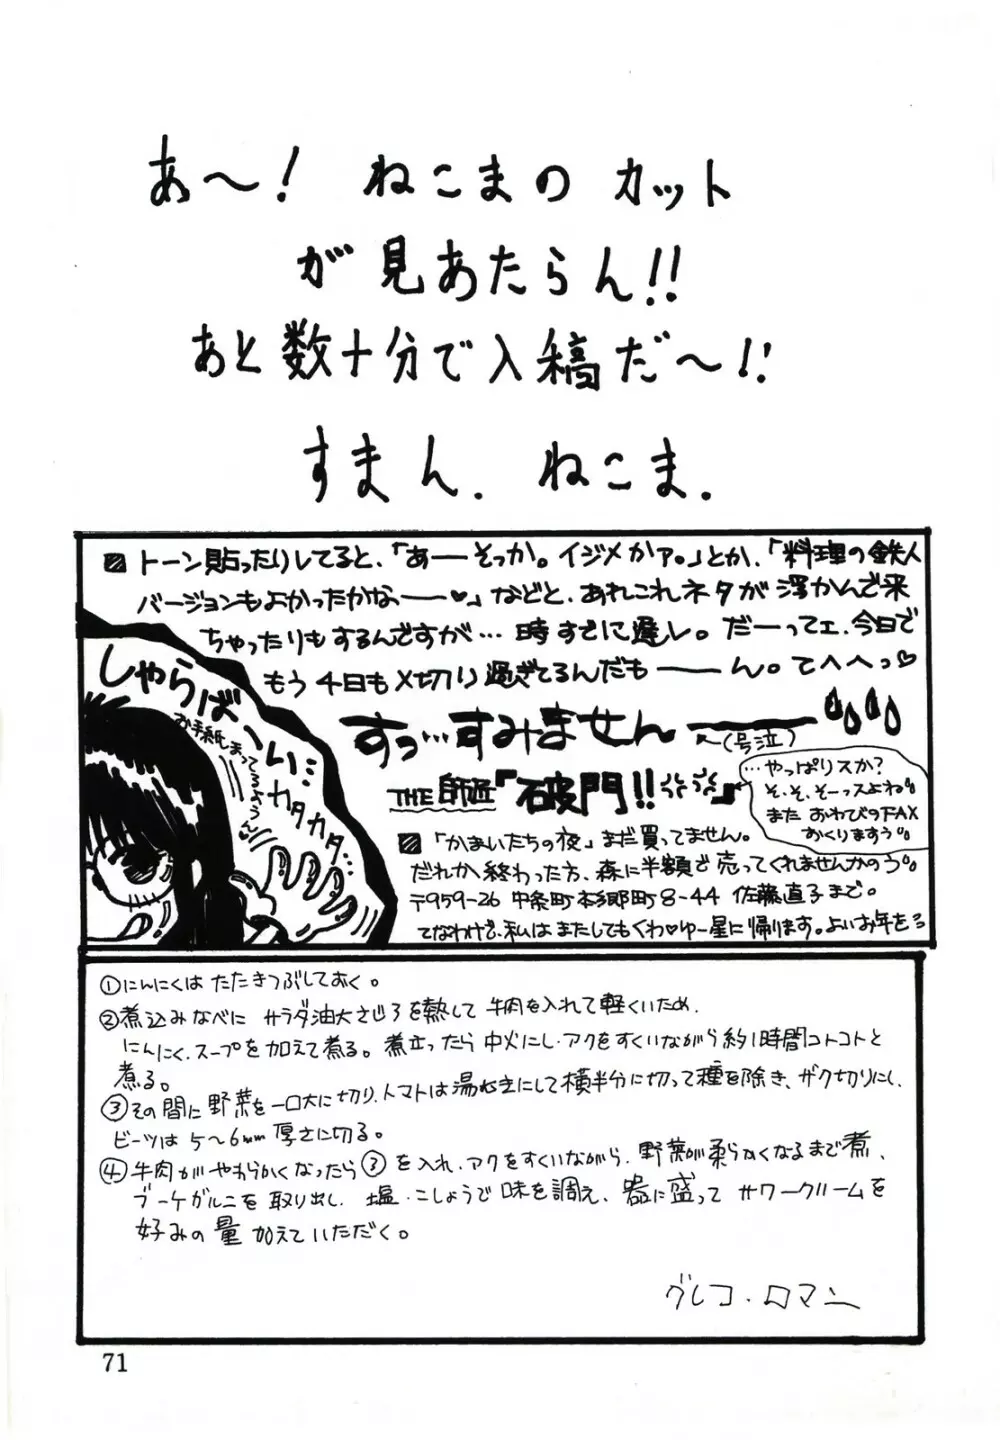 あ〜! ねこまの カット
が見あたらん!!
あと数十分で入稿だ〜!!
すまん. ねこま.
トーン貼ったりしてると、「あーそっか。イジメかァ。」とか、「料理の鉄人
バージョンもよかったかなー♥」などと、あれこれネタが浮かんで来
ちゃったりもするんですが…時すでに遅し。だーってェ、今日で
もう4日も〆切り過ぎてるんだもーーん。てへへっ♡
すっ…すみませんーー
(号泣)
THE 師匠『破門!!』
…やっぱりスか?
そ、そ、そーっスよね
また おわびのFAX
おくりますぅ
しゃらばーい…
お手紙まってるよぅん
カタカタ
「かまいたちの夜」まだ買ってません。
だれか終わった方、森に半額で売ってくれませんかのう。
てなわけで、私はまたしてもくわ♡ゆー星に帰ります。よいお年を
①にんにくは たたきつぶしておく。
②煮込みなべに サラダ油大さじ3を熱して 牛肉を入れて軽くいため、
にんにく、スープを加えて煮る。煮立ったら 中火にし、アクをすくいながら約1時間コトコトと
煮る。
③その間に野菜を一口大に切り、トマトは湯むきにして横半分に切って種を除き、ザク切りにし、
ビーツは 5〜6mm 厚さに切る。
④牛肉がやわらかくなったら③を入れ、アクをすくいながら、野菜が柔らかくなるまで煮、
ブーケガルニを取り出し、塩・こしょうで味を調え、器に盛って サワークリームを
好みの量 加えていただく。
グレコ・ロマン
71